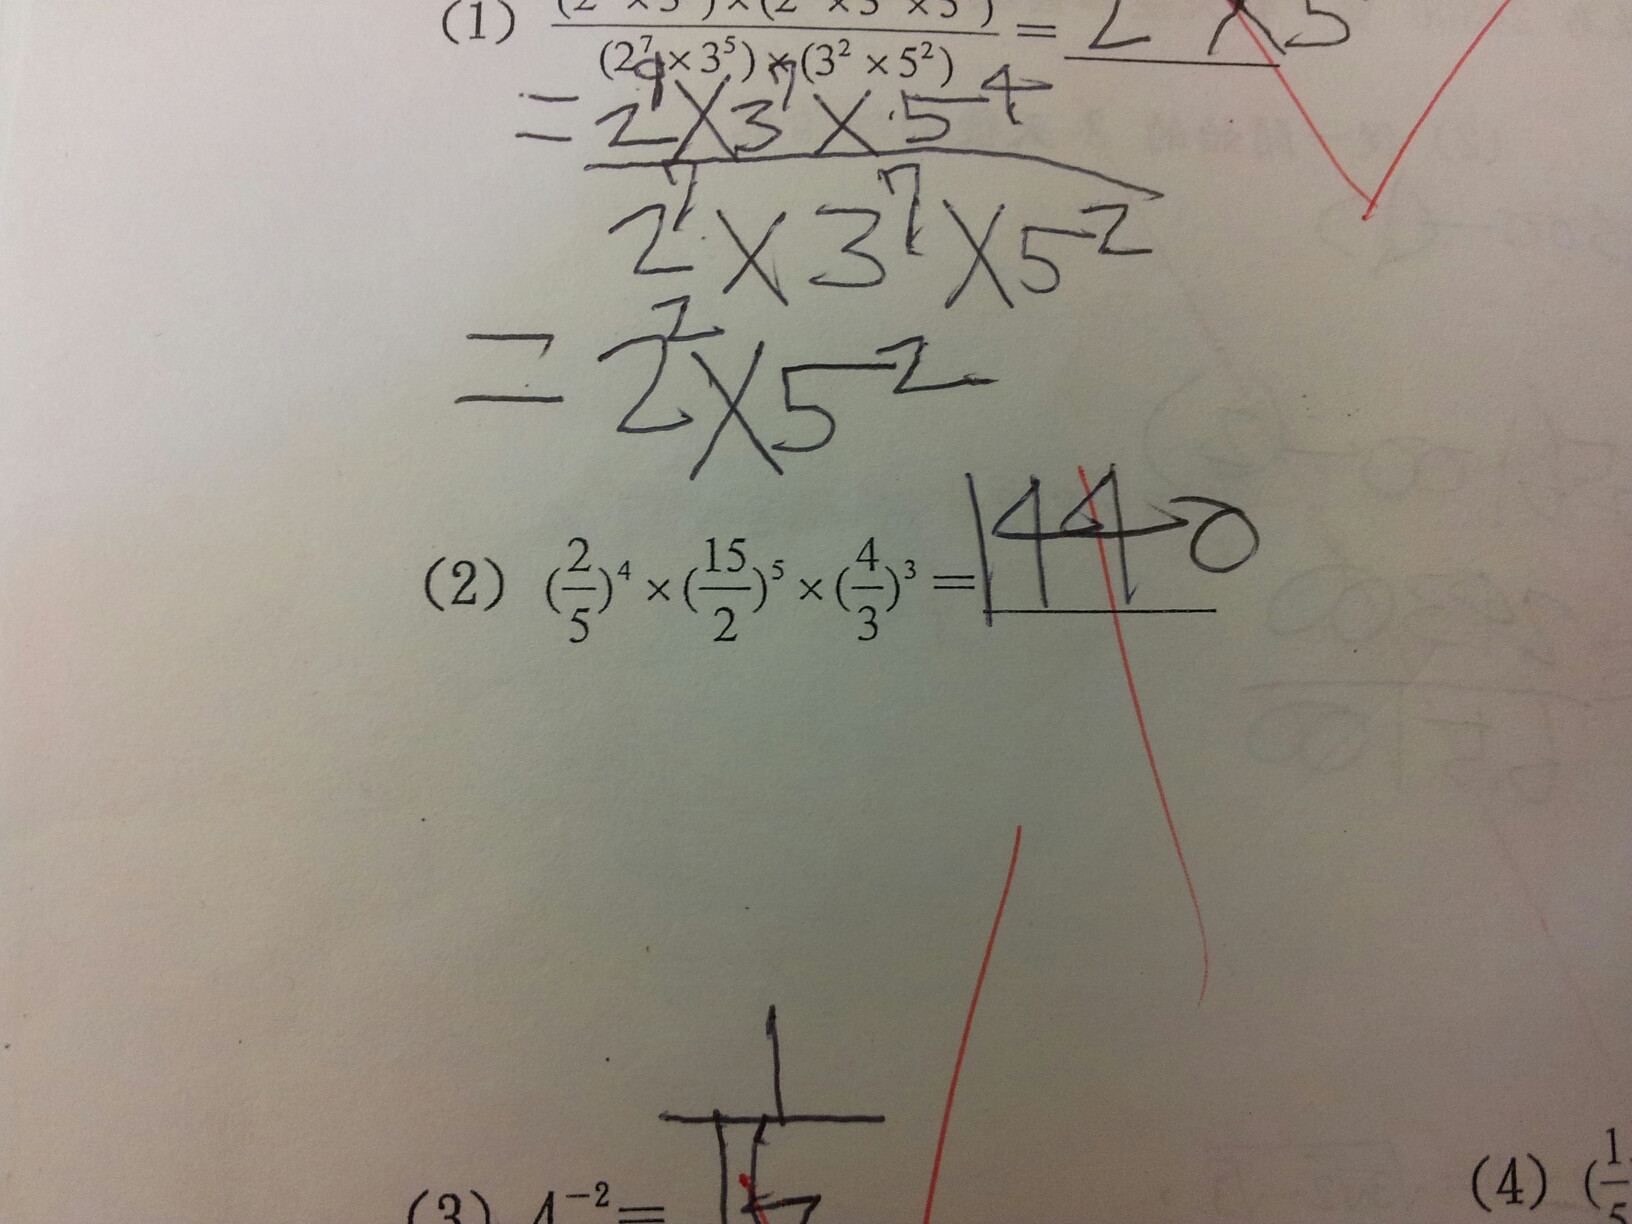 (1) / (2⁷ × 3⁵) × (3² × 5²) = 2 × 5
= 2⁹ × 3⁷ × 5⁴
2⁷ × 3⁷ × 5²
= 2² × 5²
(2) (2/5)⁴ × (15/2)⁵ × (4/3)³ = 1440
(3) 4⁻² = 1
(4) (1